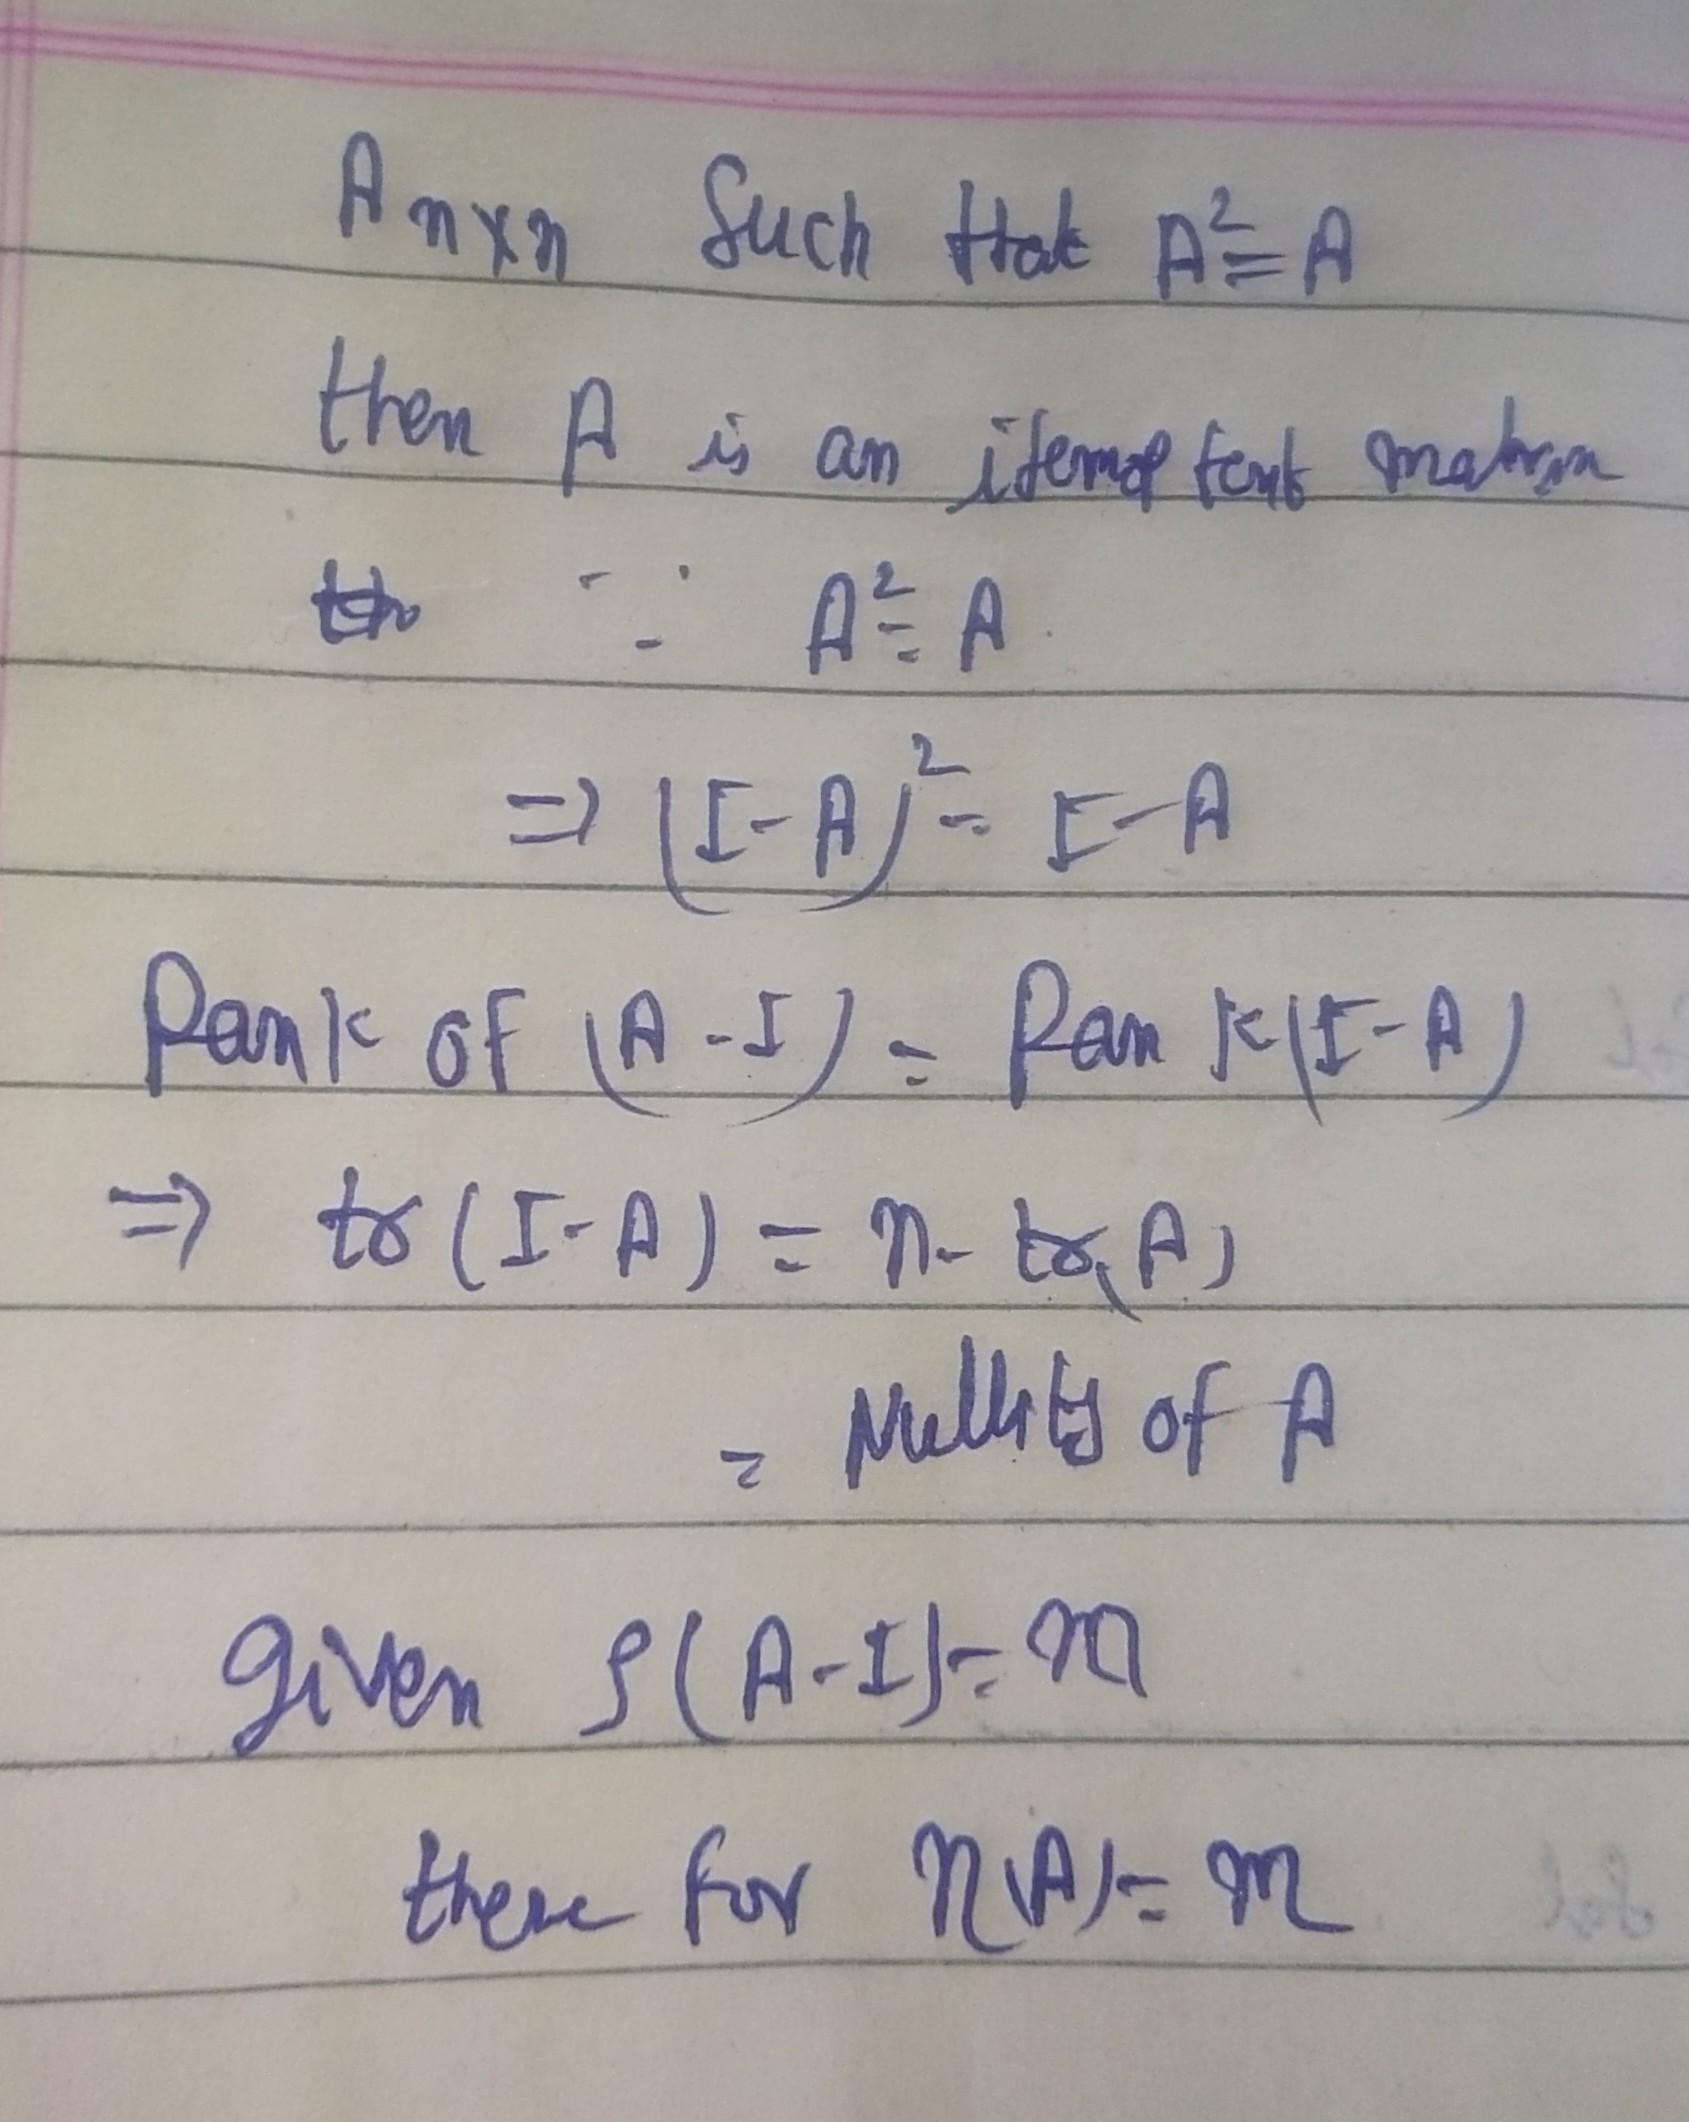 A n×n Such that A² = A
then A is an idempotent matrix
∵ A² = A
⇒ (I - A)² = I - A
Rank of (A - I) = Rank (I - A)
⇒ tr (I - A) = n - tr(A)
= Nullity of A
given ρ(A - I) = m
there for n(A) = m